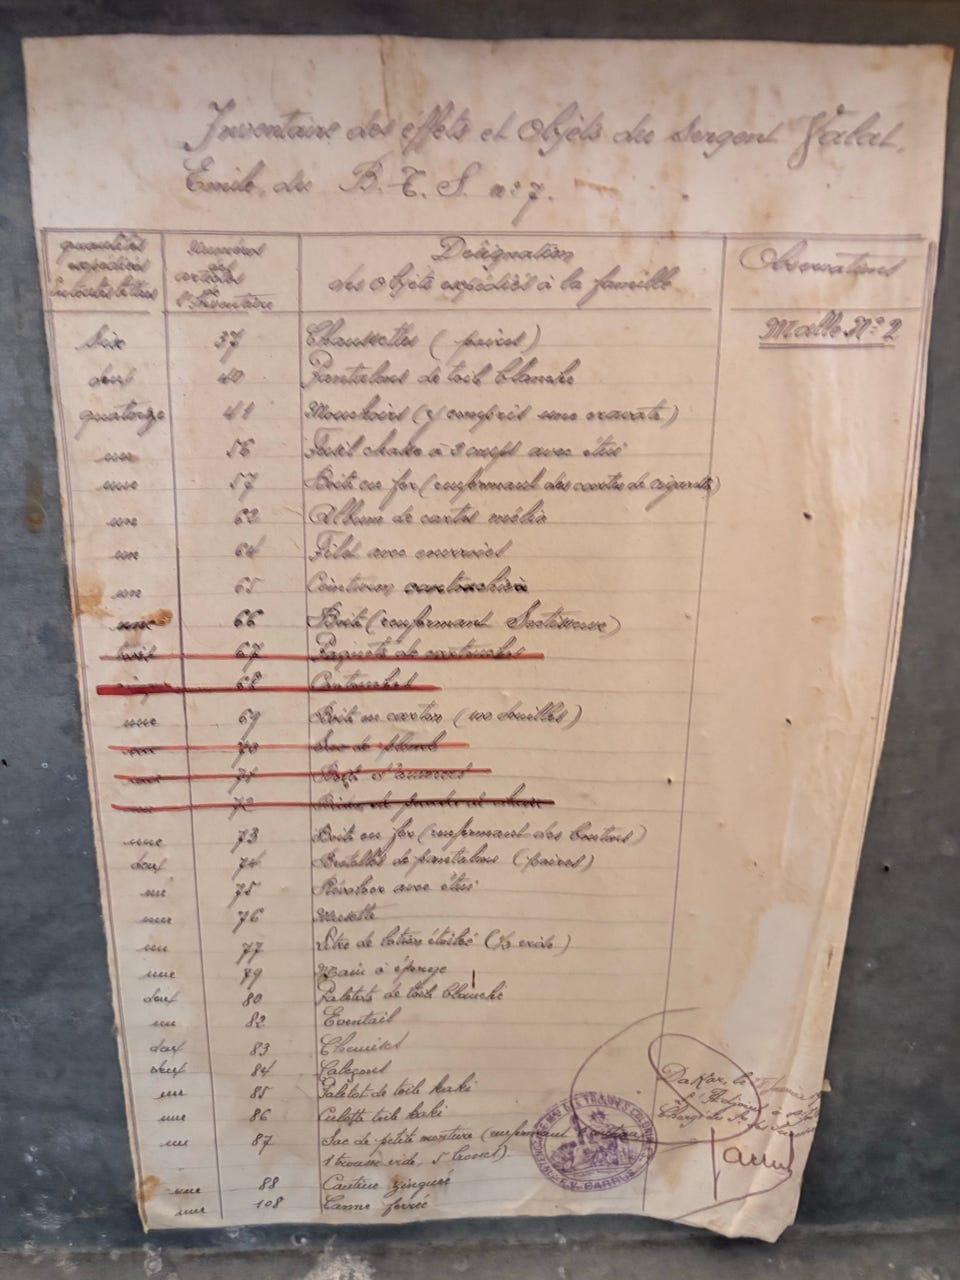 Inventaire des effets et Objets du Sergent Valat.
Emile, du B. T. S. n° 7.
quantités expédiées en toutes lettres
Numéros des articles de l'Inventaire
Désignation
des Objets expédiés à la famille
Observations
Malle N° 2
six 37 Chaussettes (paires)
deux 40 Pantalons de toile blanche
quatorze 41 Mouchoirs (y compris une cravate)
un 56 Fusil chasse à 3 coups avec étui
une 57 Boite en fer (renfermant des cartes de cigarettes)
un 63 Album de cartes
un 64 Filet avec courroies
un 65 Ceinturon cartouchière
une 66 Boite (renfermant Sertisseuse)
trois 67 Paquets de cartouches
68 Cartouches
une 69 Boite en carton (100 douilles)
un 70 Sac de plomb
71 Boite d'amorces
72 de poudre
une 73 Boite en fer (renfermant des boutons)
deux 74 Bretelles de pantalons (paires)
un 75 Révolver avec étui
une 76 Musette
un 77 étoilé
une 79 Main à éponge
deux 80 Paletots de toile blanche
un 82 Eventail
deux 83 Chemises
deux 84 Caleçons
un 85 Paletot de toile kaki
une 86 Culotte toile kaki
un 87 Sac de petite monture (renfermant
1 trousse vide, 5 brosses)
une 88 Cantine zinguée
une 108 Canne ferrée
Dakar, le